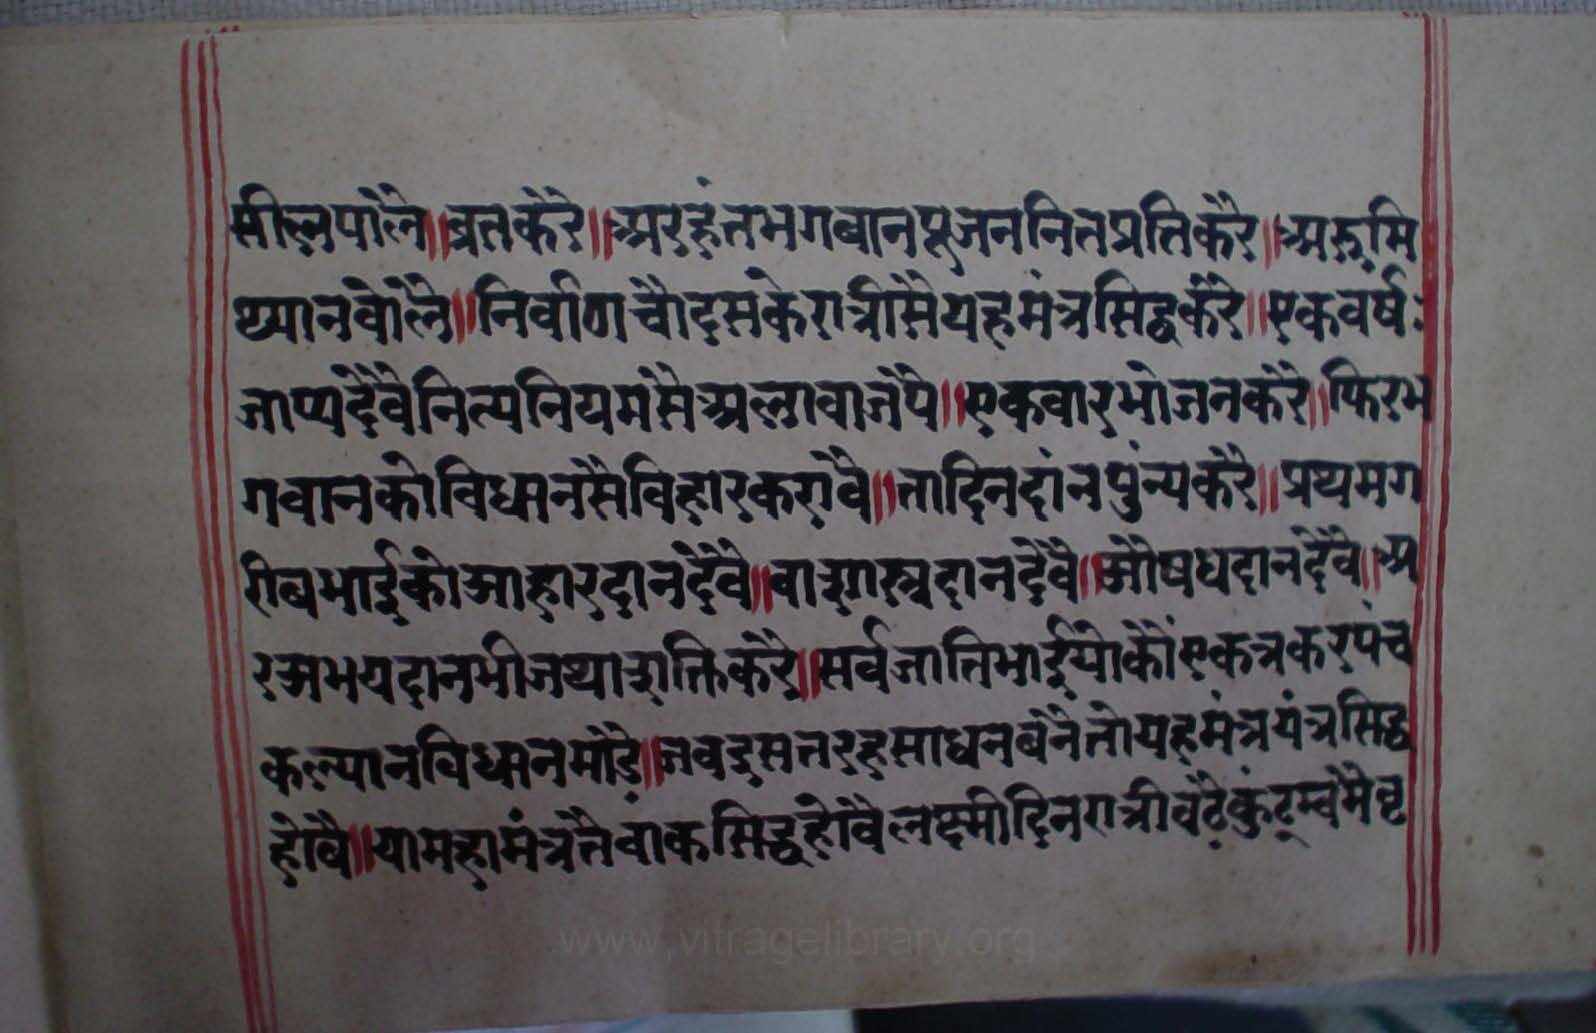 सीलपालै॥व्रतकरै॥अरहंतभगवानपूजननितप्रतिकरै॥अरुमि
थ्यानवोलै॥निर्वाणचौदसकेरात्रीसैयहमंत्रसिद्धकरै॥एकवर्ष:
जाप्यदेवैनित्यनियममैसैअलावाजपै॥एकवारभोजनकरै॥फिरभ
गवानकोविधानसैविहारकरावै॥तादिनदांनपुंन्यकरै॥प्रथमग
रीबभाईकोआहारदानदेवै॥वाशास्त्रदानदेवै॥औषधदानदेवै॥अ
रअभयदानभीजथाशक्तिकरै॥सर्वजातिभाईयोकौंएकत्रकरपंच
कल्यानविधानमांडै॥जवइसतरहसाधनबनैतोयहमंत्रयंत्रसिद्ध
होवै॥यामहामंत्रतैवांकसिद्धहोवैलक्ष्मीदिनरात्रीवढैकुंटम्वमै
www.vitragelibrary.org